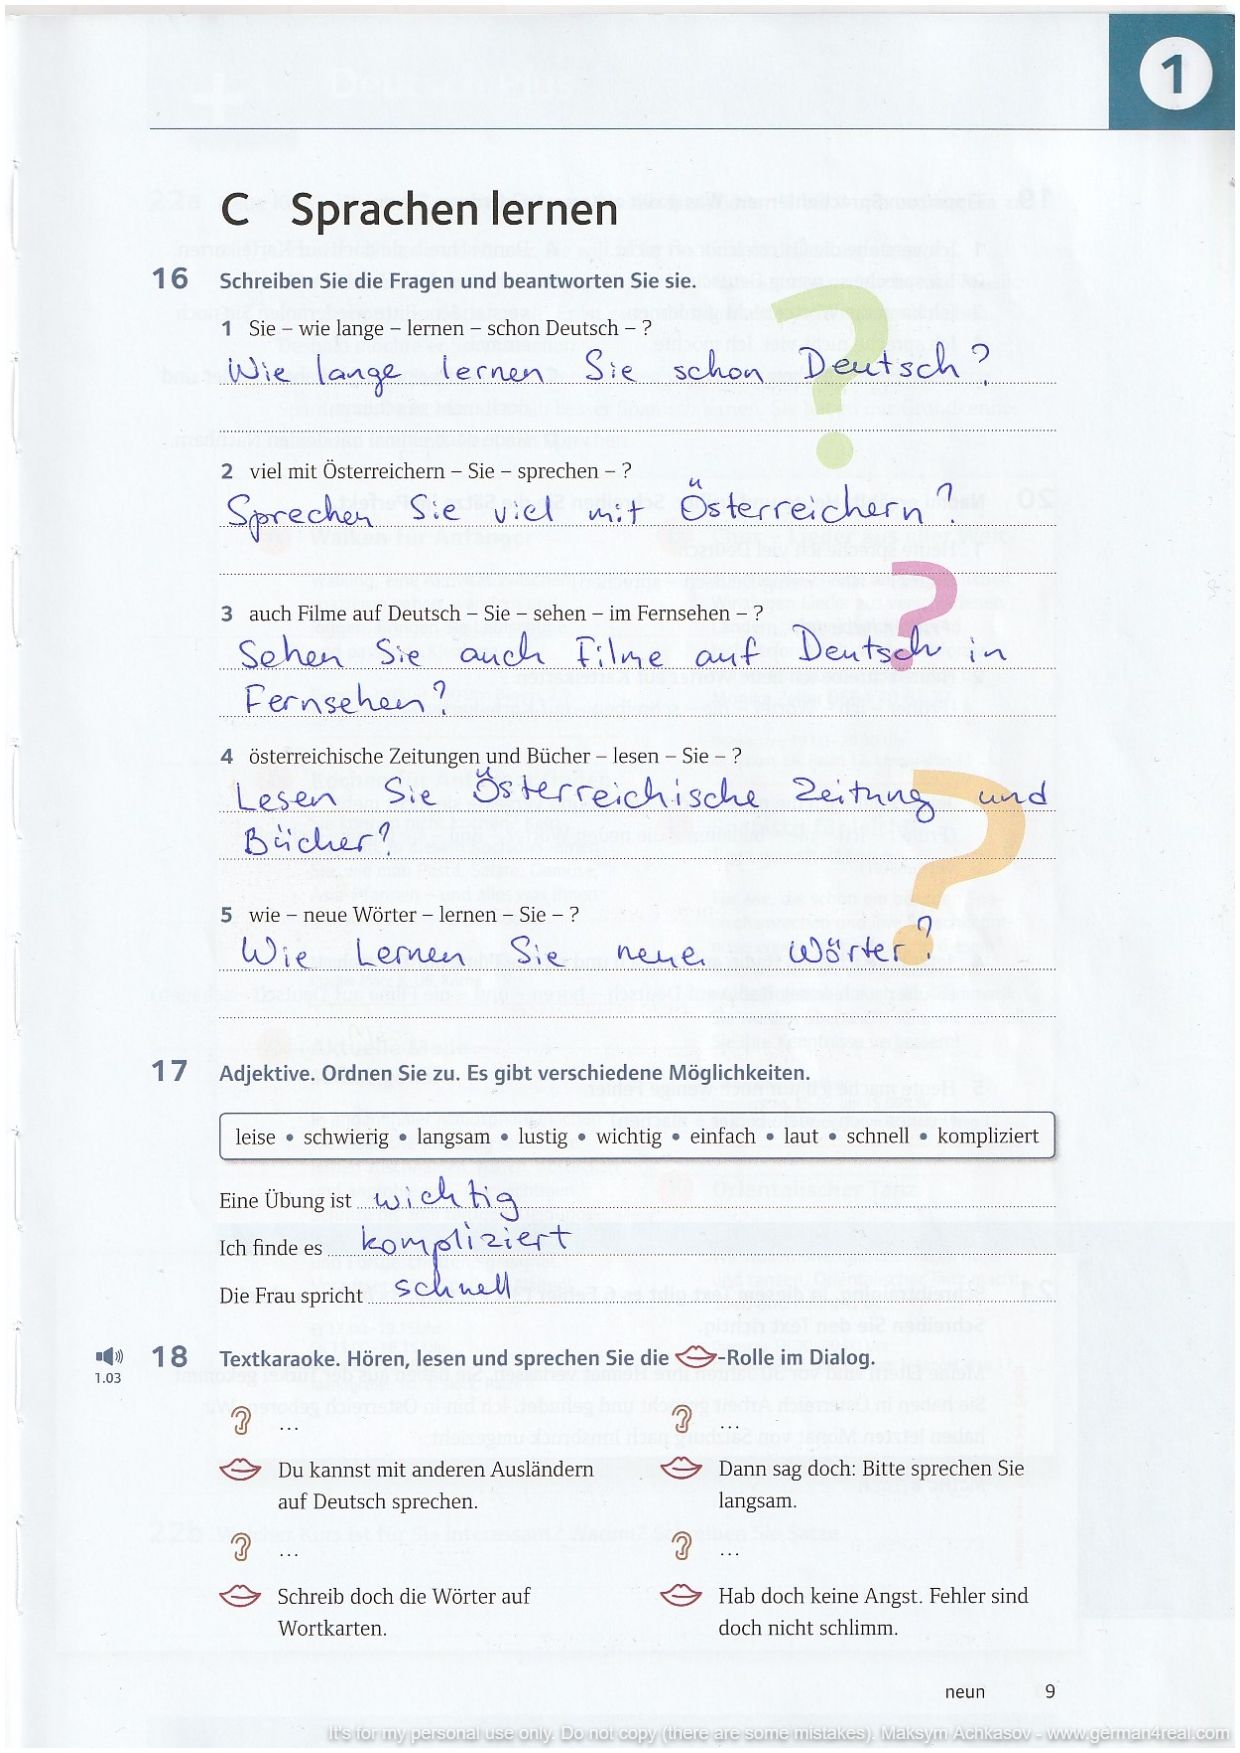 1
C Sprachen lernen
16 Schreiben Sie die Fragen und beantworten Sie sie.
1 Sie – wie lange – lernen – schon Deutsch – ?
Wie lange lernen Sie schon Deutsch?
2 viel mit Österreichern – Sie – sprechen – ?
Sprechen Sie viel mit Österreichern?
3 auch Filme auf Deutsch – Sie – sehen – im Fernsehen – ?
Sehen Sie auch Filme auf Deutsch in
Fernsehen?
4 österreichische Zeitungen und Bücher – lesen – Sie – ?
Lesen Sie Österreichische Zeitung und
Bücher?
5 wie – neue Wörter – lernen – Sie – ?
Wie Lernen Sie neue Wörter?
17 Adjektive. Ordnen Sie zu. Es gibt verschiedene Möglichkeiten.
leise • schwierig • langsam • lustig • wichtig • einfach • laut • schnell • kompliziert
Eine Übung ist wichtig
Ich finde es kompliziert
Die Frau spricht schnell
1.03
18 Textkaraoke. Hören, lesen und sprechen Sie die -Rolle im Dialog.
...
Du kannst mit anderen Ausländern
auf Deutsch sprechen.
...
Schreib doch die Wörter auf
Wortkarten.
...
Dann sag doch: Bitte sprechen Sie
langsam.
...
Hab doch keine Angst. Fehler sind
doch nicht schlimm.
neun 9
It's for my personal use only. Do not copy (there are some mistakes). Maksym Achkasov - www.german4real.com